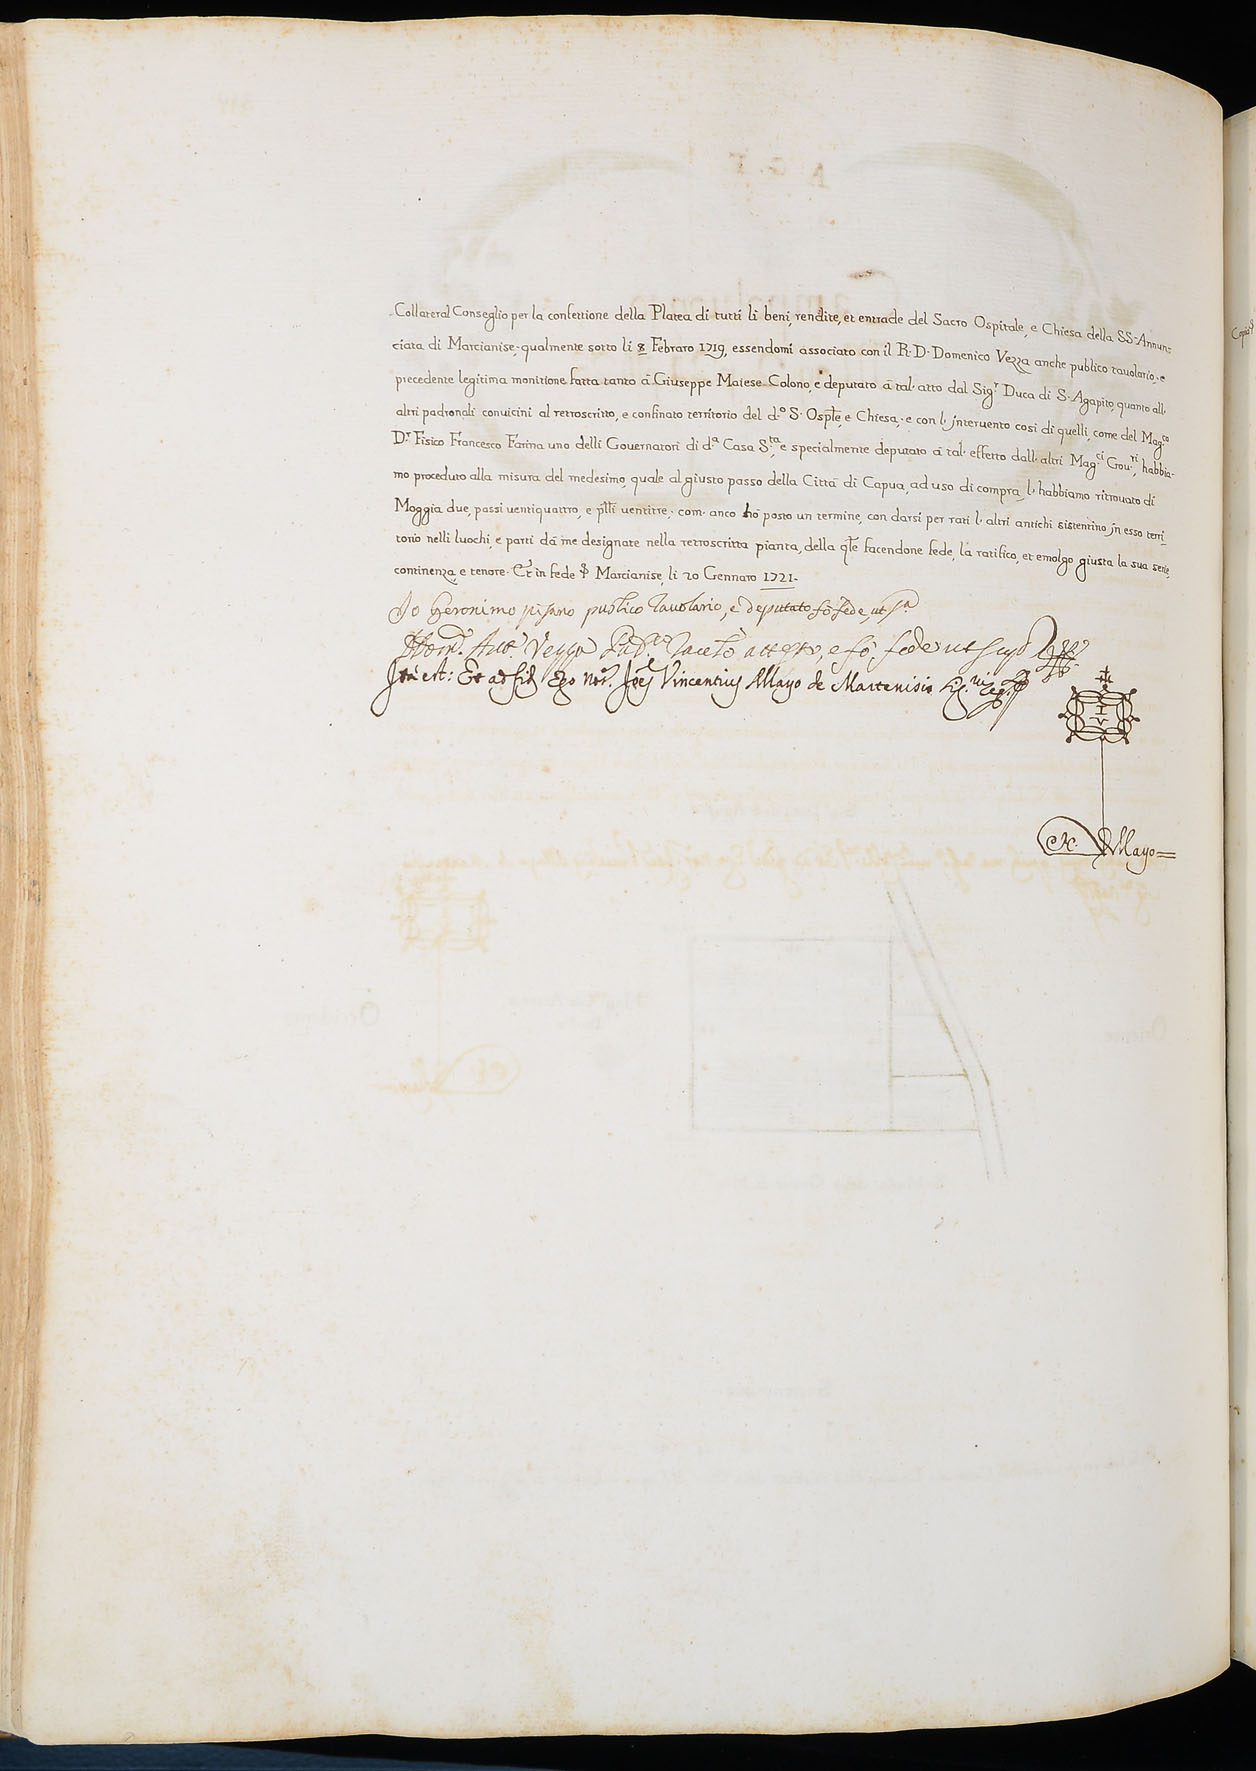 Collateral Conseglio per la confettione della Platea di tutti li beni, rendite, et entrade del Sacro Ospitale, e Chiesa della SS. Annun=
ciata di Marcianise, qualmente sotto li 8 Febraro 1719, essendomi associato con il R. D. Domenico Vezza anche publico tavolario, e
precedente legitima monitione fatta tanto à Giuseppe Maiese Colono, e deputato à tal' atto dal Sigr Duca di S. Agapito, quanto all'
altri padronali convicini al retroscritto, e confinato territorio del do S. Osple, e Chiesa, e con l' intervento così di quelli, come del Magco
Dr Fisico Francesco Farina uno delli Governatori di da Casa Sta, e specialmente deputato à tal' effetto dall' altri Magci Govri, habbia=
mo proceduto alla misura del medesimo, quale al giusto passo della Città di Capua, ad uso di compra, l' habbiamo ritrovato di
Moggia due, passi ventiquattro, e plli ventitre, com' anco hò posto un termine, con darsi per rati l' altri antichi sistentino in esso terri=
torio nelli luochi, e parti dà me designate nella retroscritta pianta, della qle facendone fede, la ratifico, et emolgo giusta la sua serie,
continenza, e tenore. Et in fede &c Marcianise, li 20 Gennaro 1721.
Io Geronimo pisano publico Tavolario, e deputato fò fede, ut sa
Domco Anto Vezza attesto, e fò fede ut supa
Ita est: Et ad fid Ego Nots Joes Vincentius Mayo de Martenisio
I
V
N. Mayo=